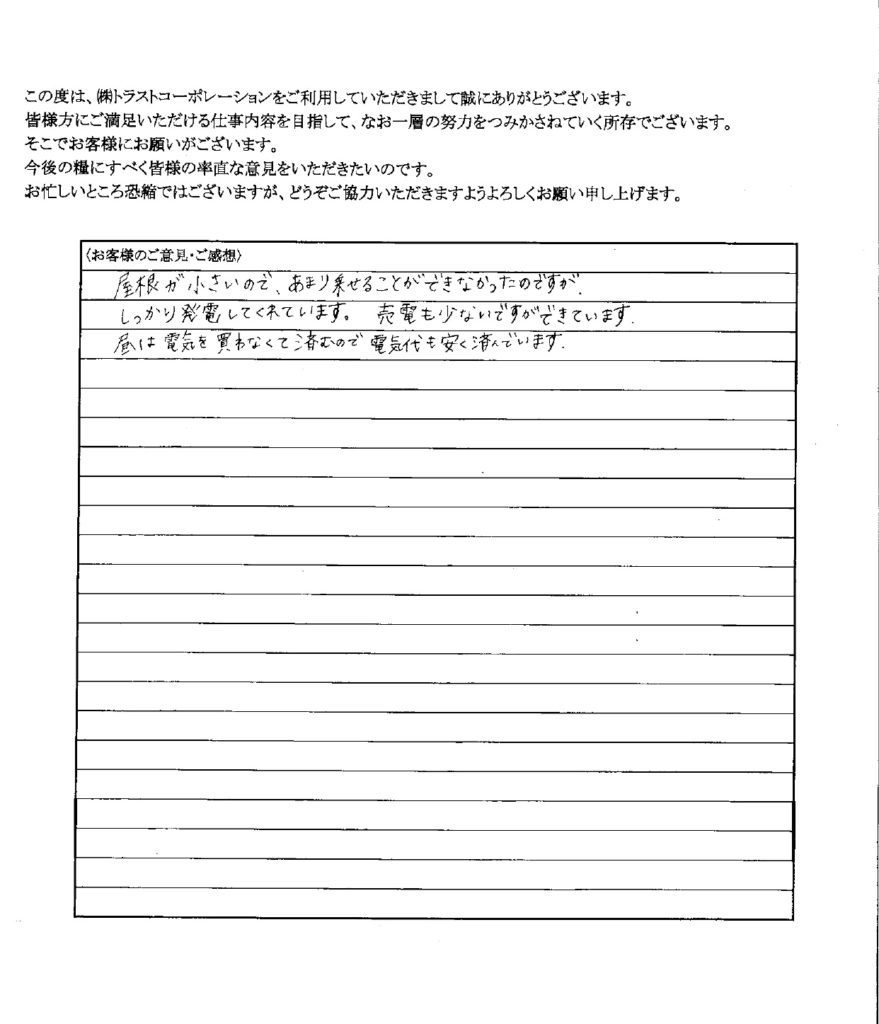 この度は、㈱トラストコーポレーションをご利用していただきまして誠にありがとうございます。
皆様方にご満足いただける仕事内容を目指して、なお一層の努力をつみかさねていく所存でございます。
そこでお客様にお願いがございます。
今後の糧にすべく皆様の率直な意見をいただきたいのです。
お忙しいところ恐縮ではございますが、どうぞご協力いただきますようよろしくお願い申し上げます。
〈お客様のご意見・ご感想〉
屋根が小さいので、あまり乗せることができなかったのですが、
しっかり発電してくれています。 売電も少ないですができています。
昼は電気を買わなくて済むので電気代も安く済んでいます。